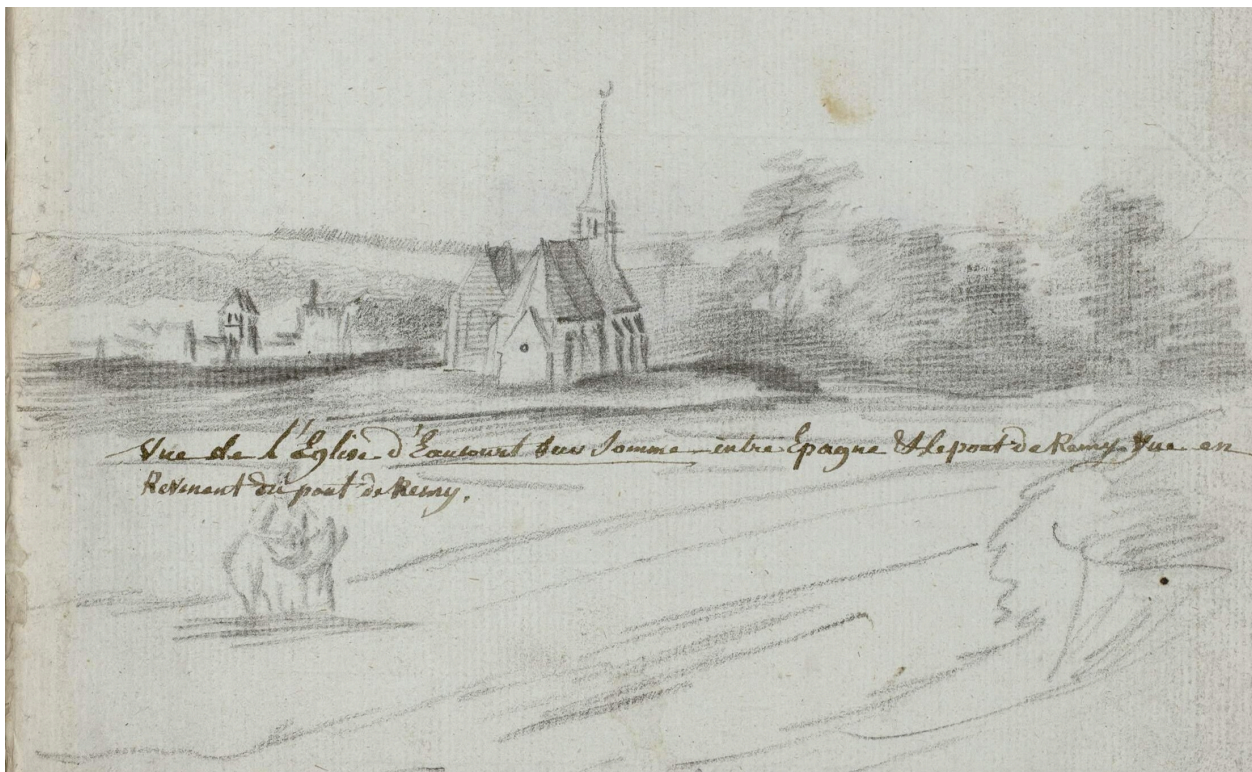 Vue de l'Eglise d'Eaucourt sur Somme entre Epagne & le pont de Remy. Vue en
Revenant du pont de Remy.